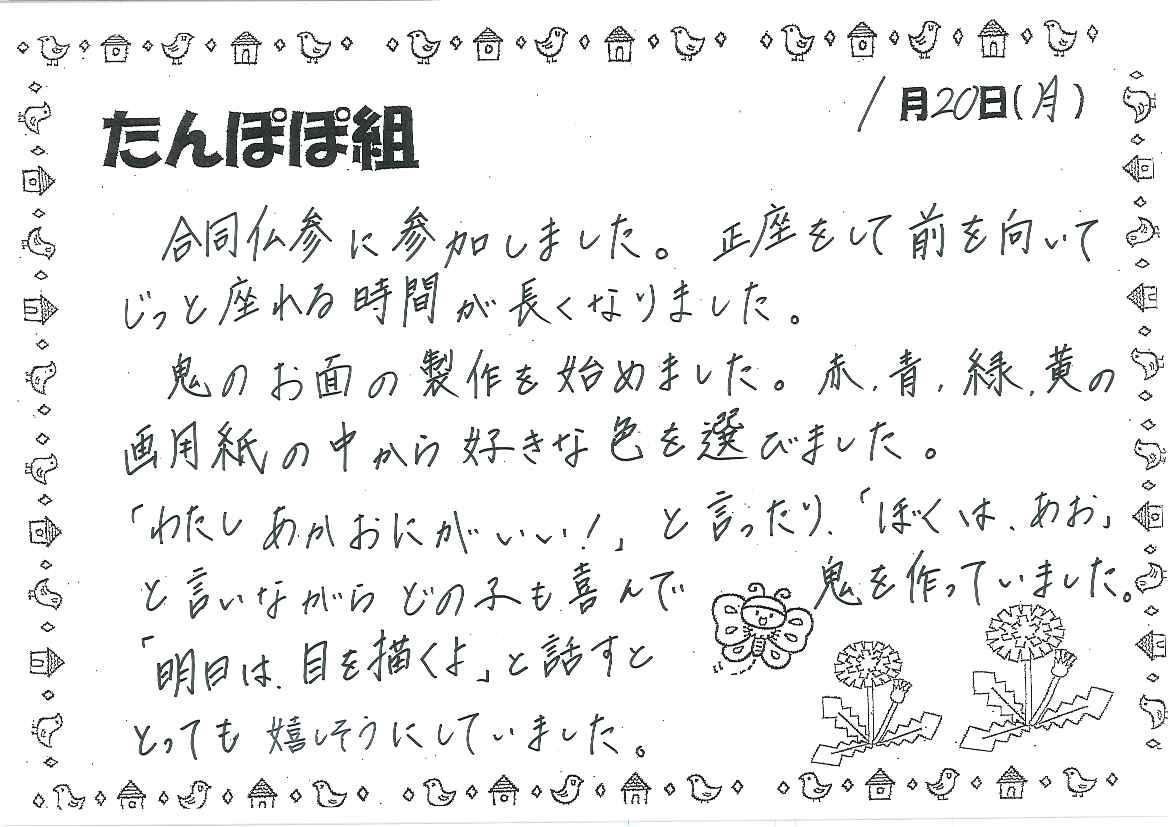 1月20日(月)
たんぽぽ組
合同仏参に参加しました。正座をして前を向いて
じっと座れる時間が長くなりました。
鬼のお面の製作を始めました。赤、青、緑、黄の
画用紙の中から好きな色を選びました。
「わたしあかおにがいい!」と言ったり、「ぼくは、あお」
と言いながらどの子も喜んで鬼を作っていました。
「明日は、目を描くよ」と話すと
とっても嬉しそうにしていました。